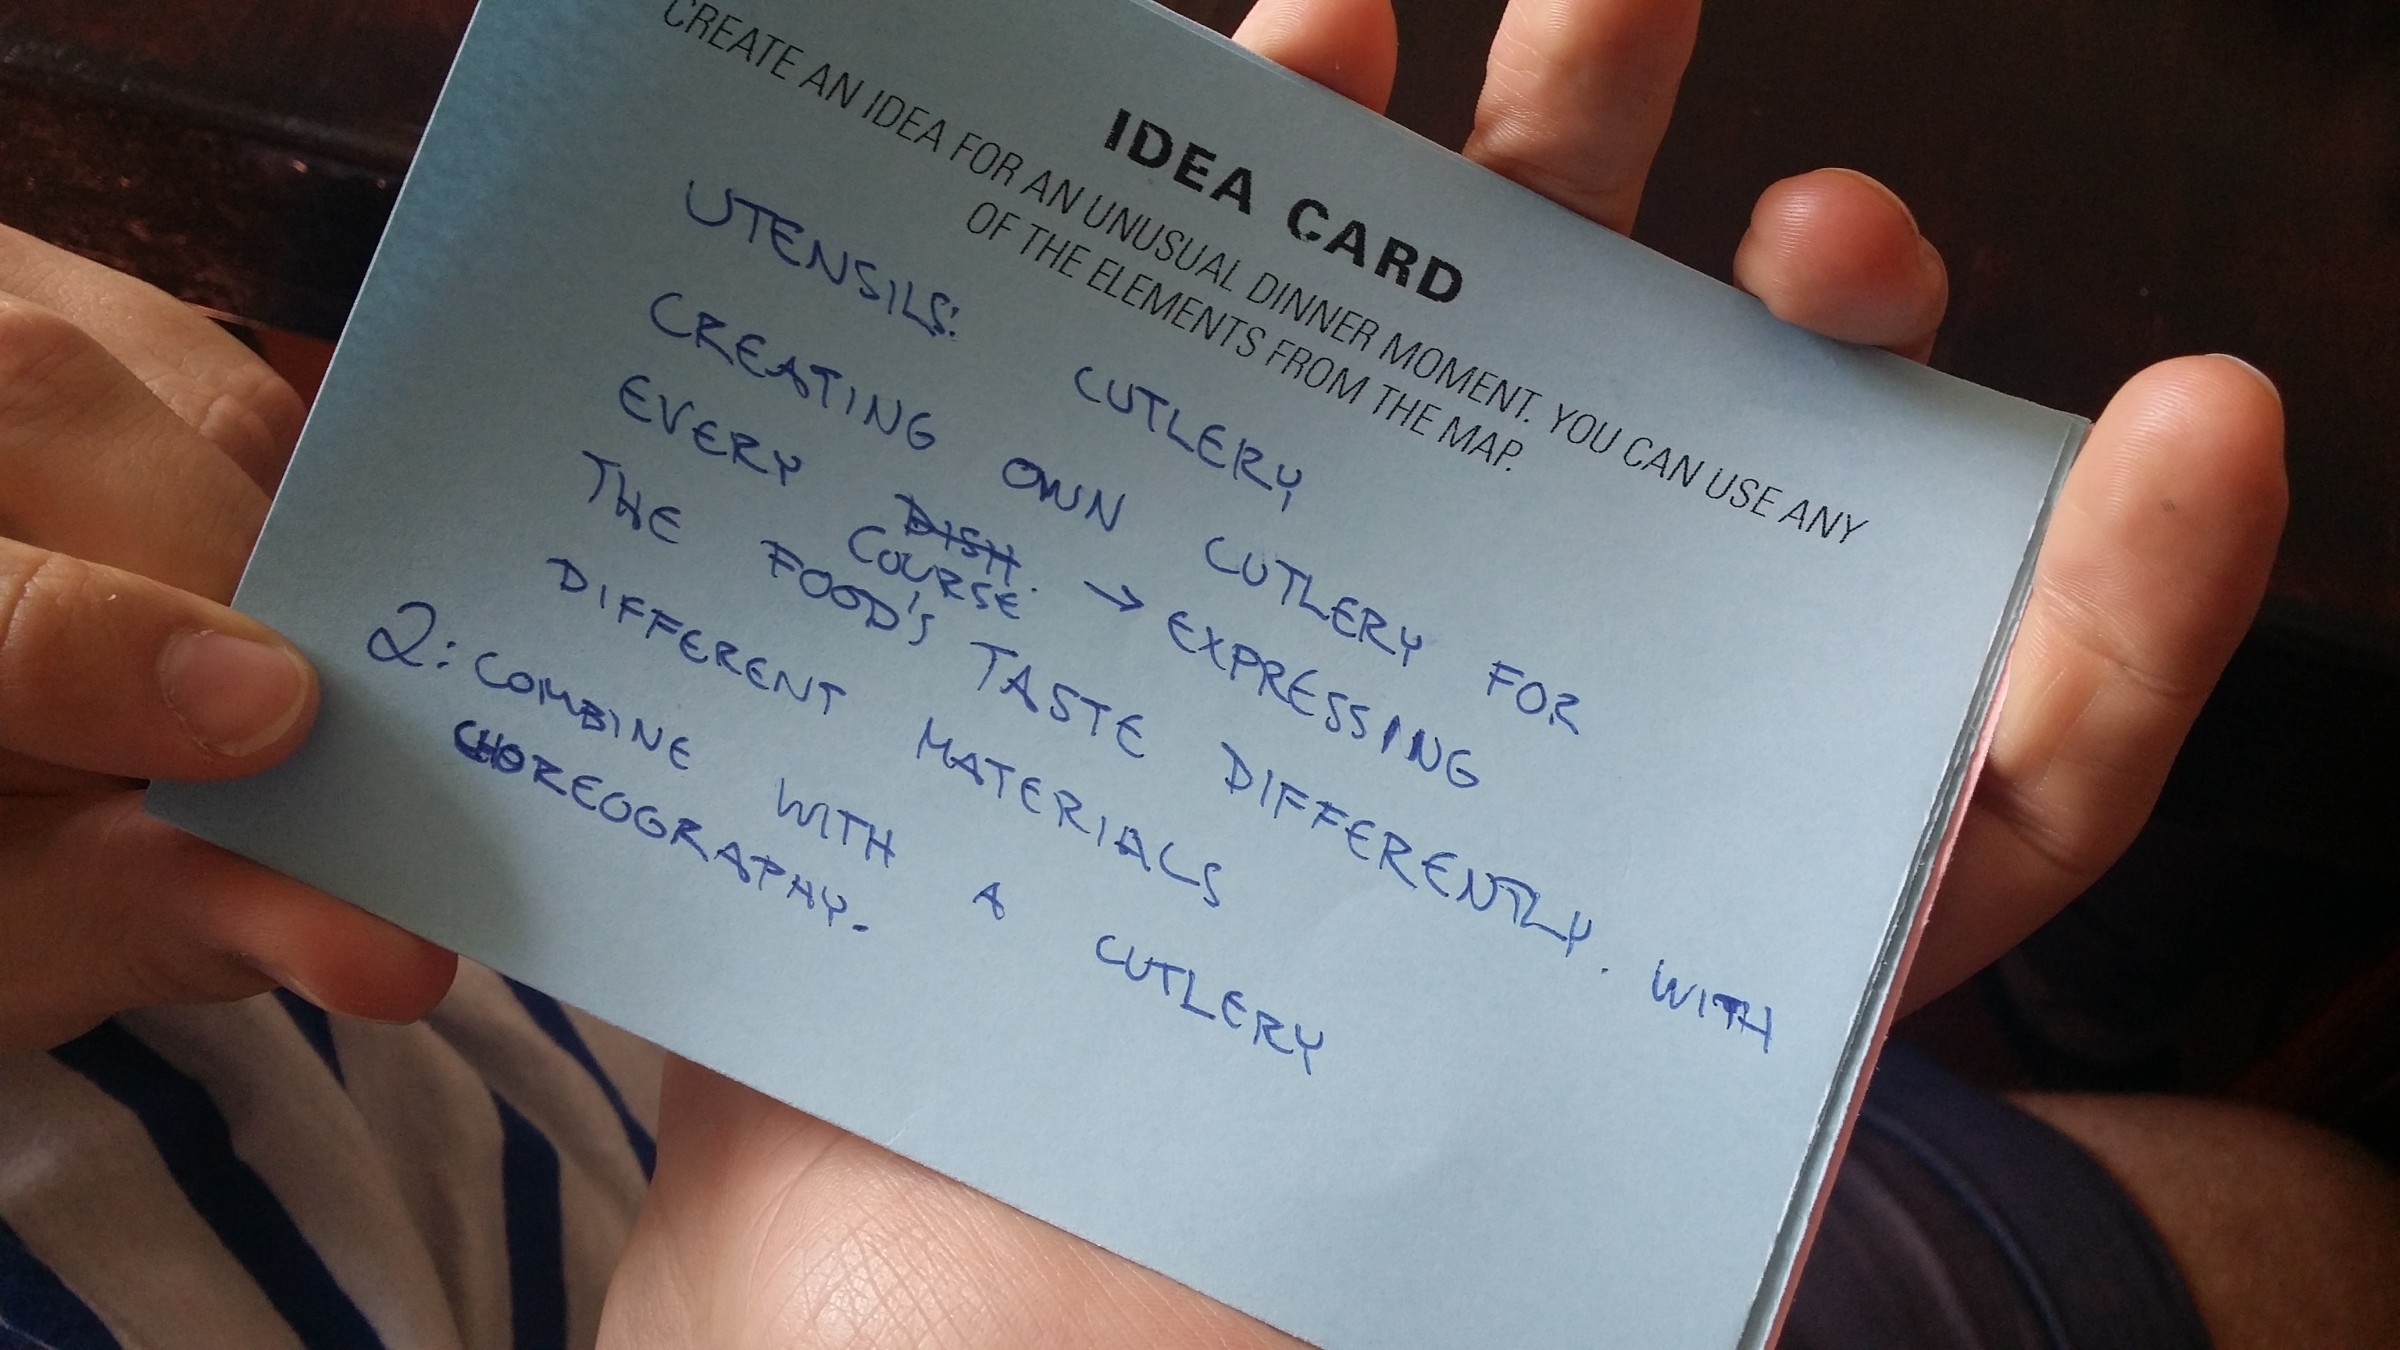 IDEA CARD
CREATE AN IDEA FOR AN UNUSUAL DINNER MOMENT. YOU CAN USE ANY
OF THE ELEMENTS FROM THE MAP.
UTENSILS: CUTLERY
CREATING OWN CUTLERY FOR
EVERY DISH. → EXPRESSING
COURSE
THE FOOD'S TASTE DIFFERENTLY. WITH
DIFFERENT MATERIALS
2: COMBINE WITH A CUTLERY
CHOREOGRAPHY.